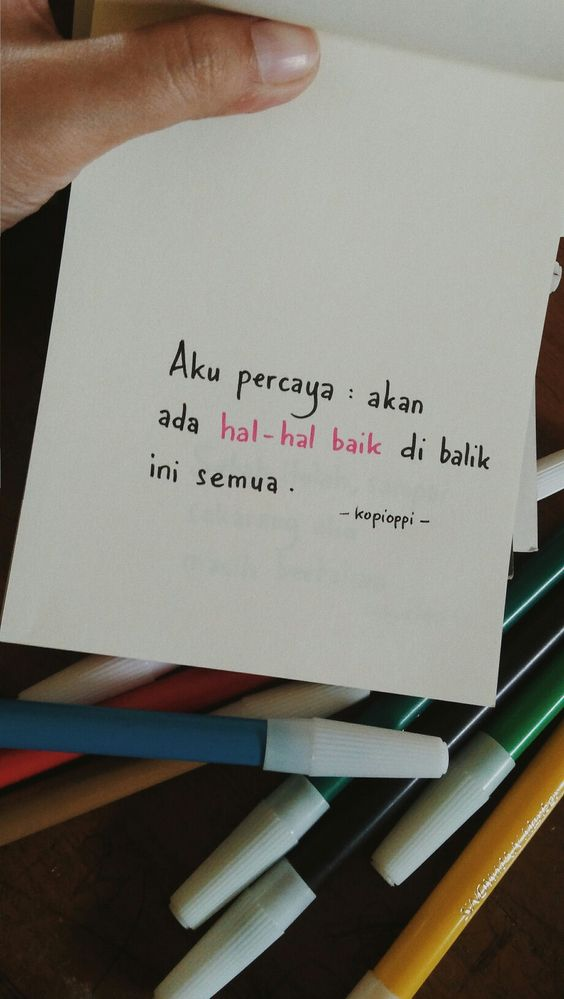 Aku percaya : akan
ada hal-hal baik di balik
ini semua .
- kopioppi -